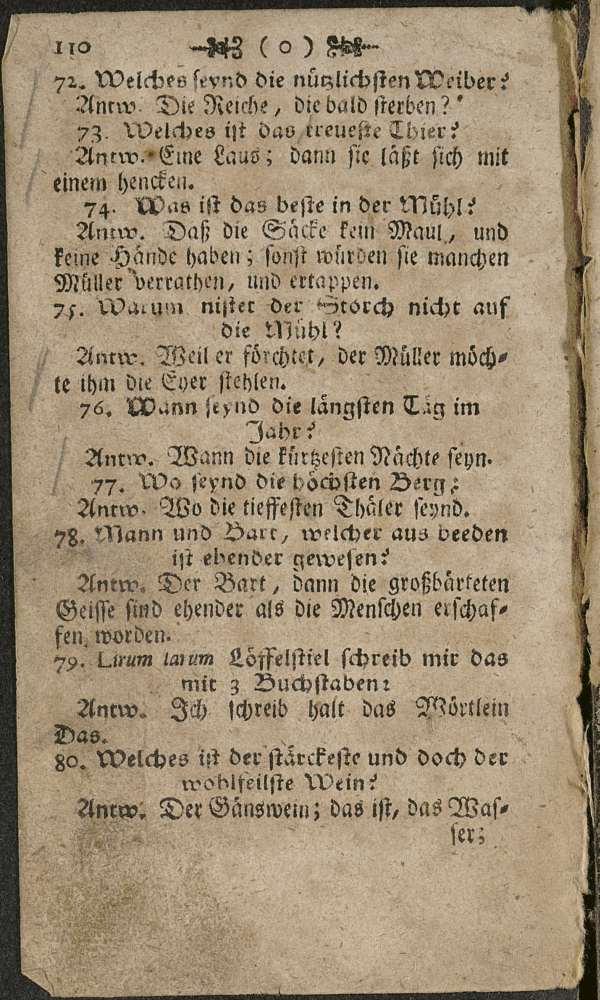 110 ( 0 )
72. Welches seynd die nützlichsten Weiber?
Antw. Die Reiche, die bald sterben?
73. Welches ist das treueste Thier?
Antw. Eine Laus; dann sie läßt sich mit
einem hencken.
74. Was ist das beste in der Mühl?
Antw. Daß die Säcke kein Maul, und
keine Hände haben; sonst würden sie manchen
Müller verrathen, und ertappen.
75. Warum nistet der Storch nicht auf
die Mühl?
Antw. Weil er förchtet, der Müller möch-
te ihm die Eyer stehlen.
76. Wann seynd die längsten Täg im
Jahr?
Antw. Wann die kürtzesten Nächte seyn.
77. Wo seynd die höchsten Berg?
Antw. Wo die tieffesten Thäler seynd.
78. Mann und Bart, welcher aus beeden
ist ehender gewesen?
Antw. Der Bart, dann die großbärteten
Geisse sind ehender als die Menschen erschaf-
fen worden.
79. Lirum larum Löffelstiel schreib mir das
mit 3 Buchstaben?
Antw. Ich schreib halt das Wörtlein
Das.
80. Welches ist der stärckeste und doch der
wohlfeilste Wein?
Antw. Der Gänswein; das ist, das Was-
ser;